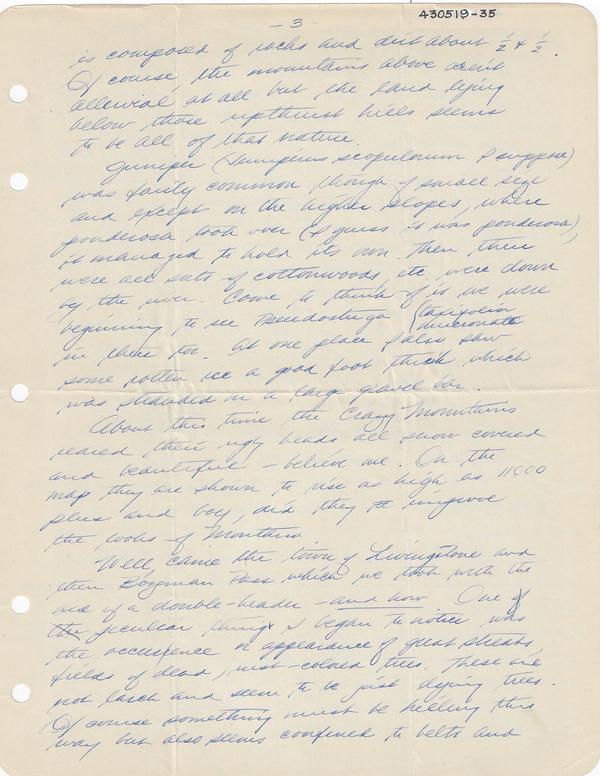 - 3 -
430519-35
is composed of rocks and dirt about ½ & ½.
Of course the mountains above aren't
allevial at all but the land lying
below those upthrust hills seems
to be all of that nature.
Juniper (Jumipirus scopulorum I suppose)
was fairly common though of small size
and except on the higher slopes, where
ponderosa took over (I guess it was ponderosa),
it managed to hold its own. Then there
were all sorts of cottonwoods, etc. were down
by the river. Come to think of it we were
beginning to see Pseudostuga (taxifolia
mucronata
in there too. At one place I also saw
some rotten ice a good foot thick which
was stranded on a large gravel bar.
About this time the Crazy Mountains
reared their ugly heads all snow covered
and beautiful - believe me. On the
map they are shown to rise as high as 11000
plus and boy, did they improve
the looks of Montana
Well, came the town of Livingstone and
then Bozeman Pass which we took with the
aid of a double-header - and how. One of
the peculiar things I began to notice was
the occurrence or appearance of great streaks,
fields of dead, rust-colored trees. These are
not larch and seem to be just dying trees.
Of course something must be killing this
way but also seems confined to belts and